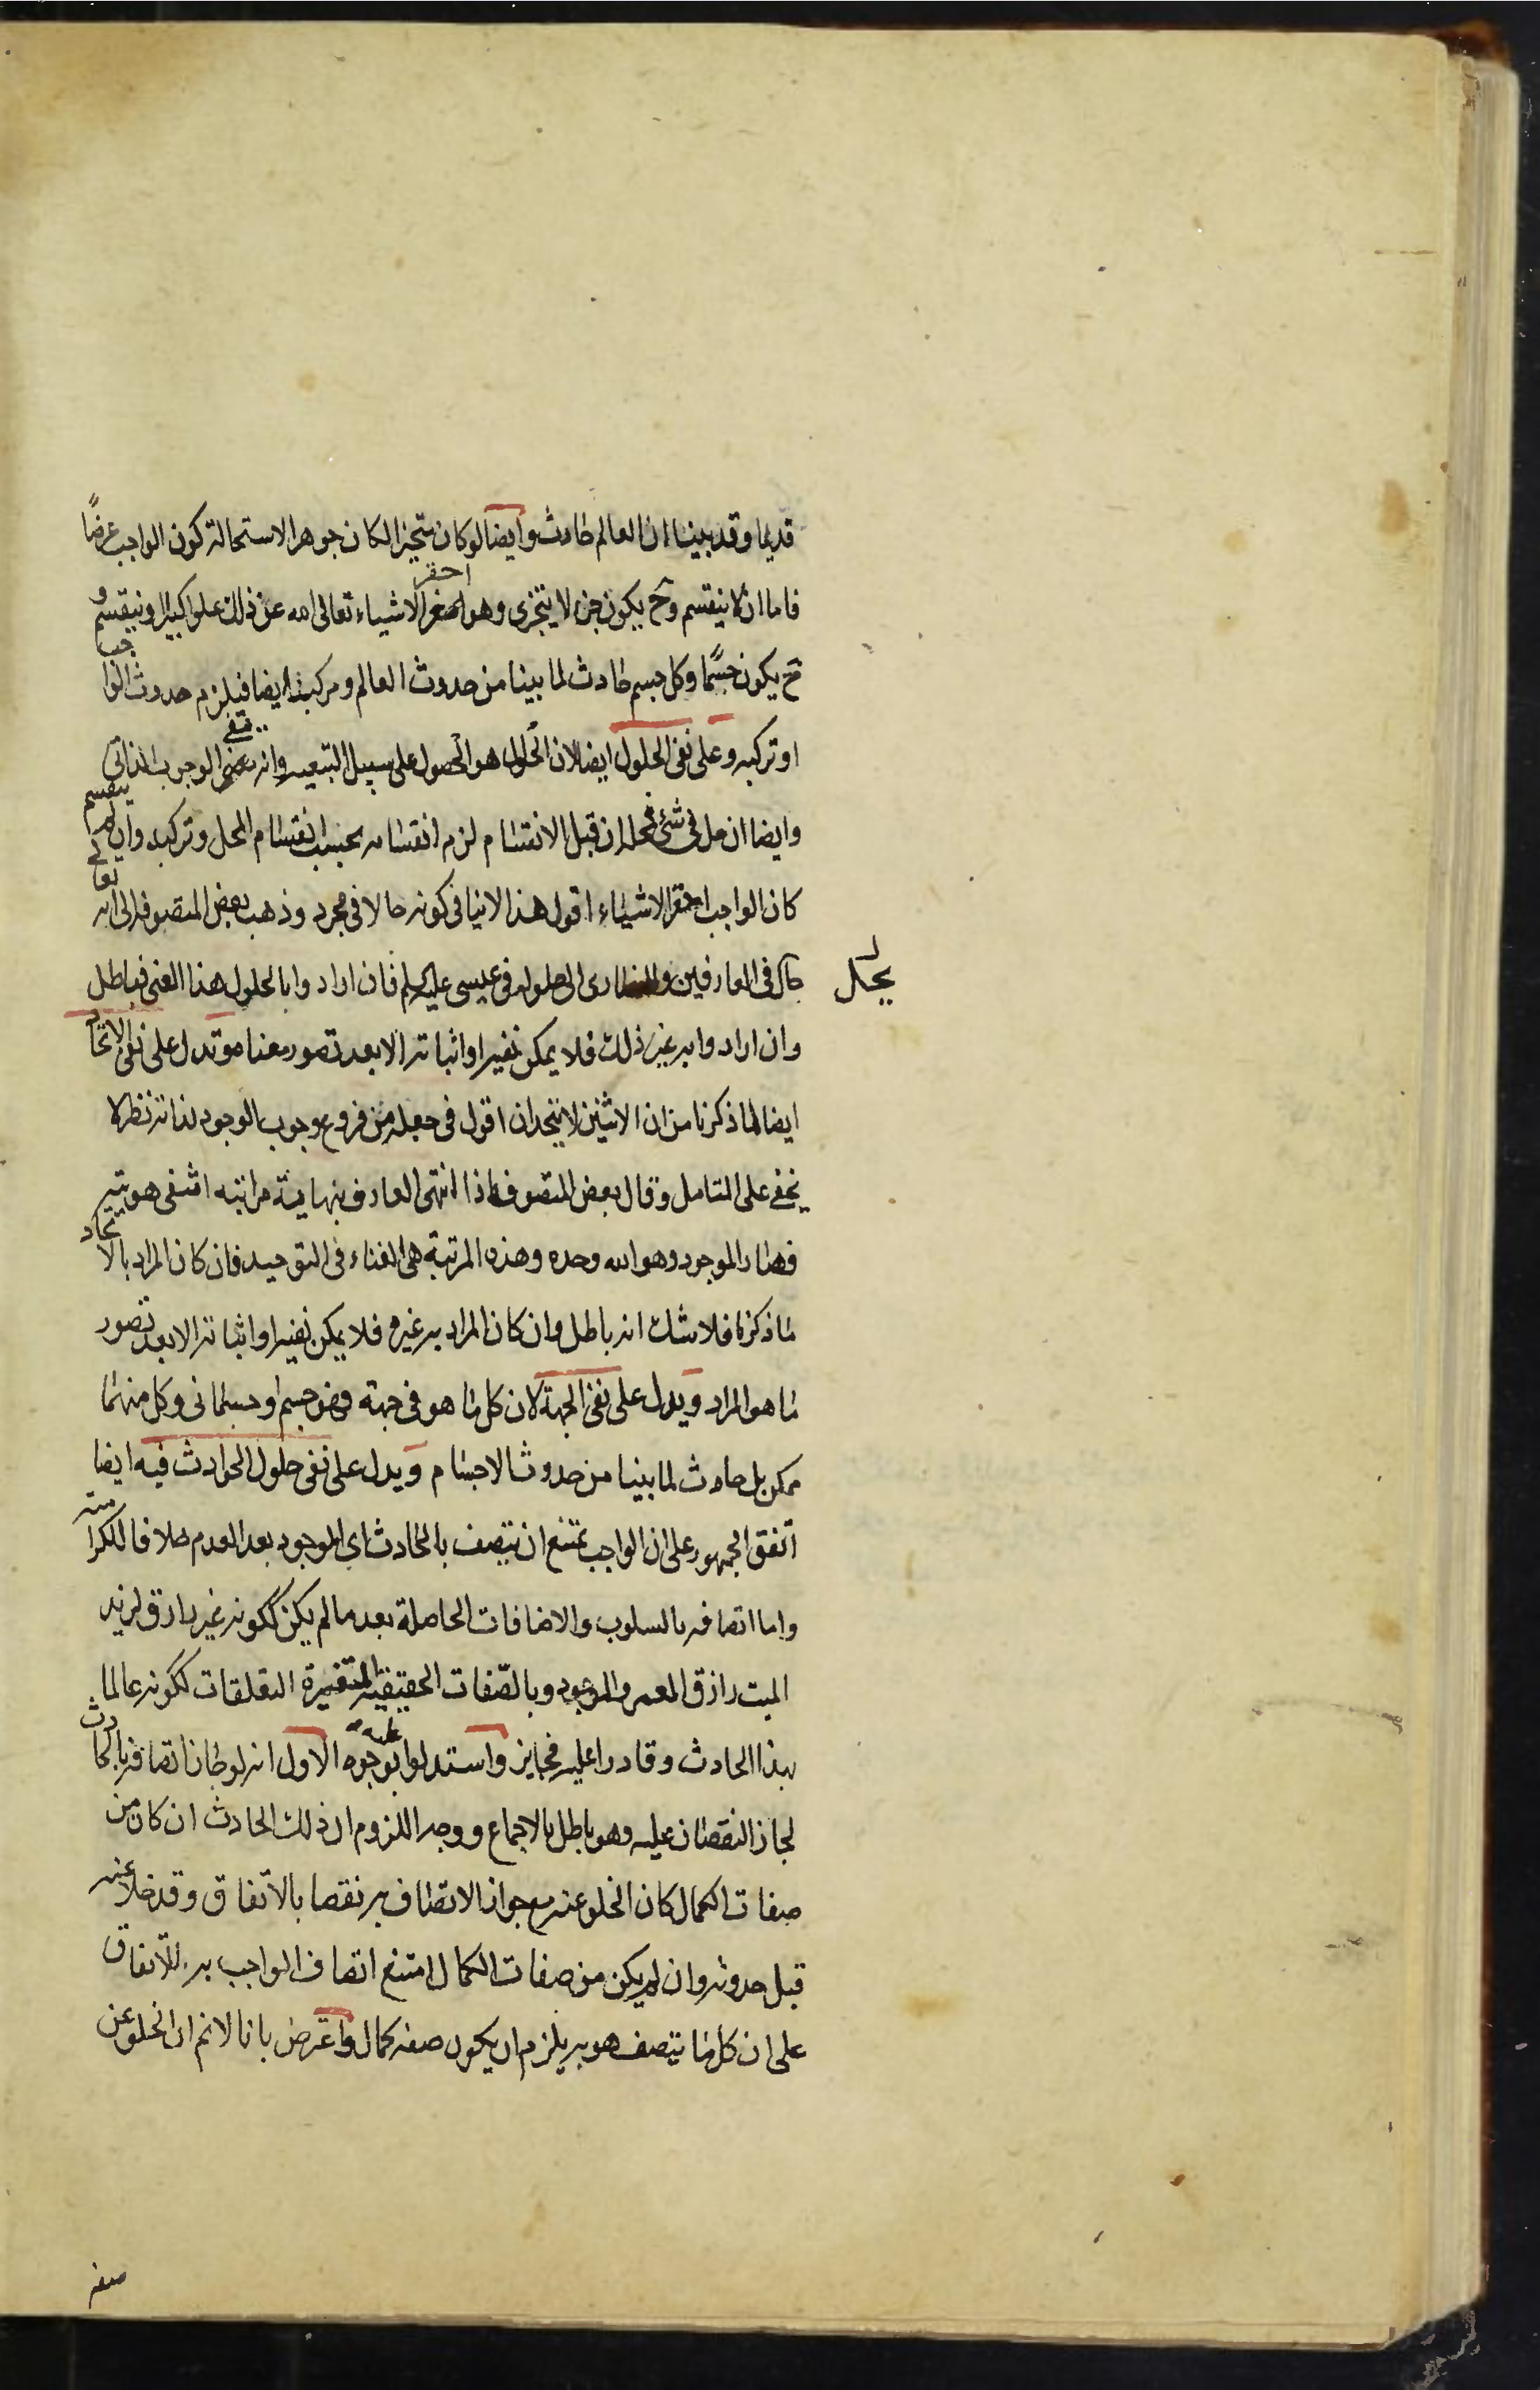 قديما وقد بينا ان العالم حادث وايضا لو كان متحيزا لكان جوهرا لاستحالة كون الواجب عرضًا
فاما ان لا ينقسم وح يكون جزء لا يتجزى وهو احقر اصغر الاشياء تعالى الله عن ذلك علوا كبيرا او ينقسم و
ح يكون جسمًا وكل جسم حادث لما بينا من حدوث العالم ومركب ايضا فيلزم حدوث الواجب
او تركبه وعلى نفى الحلول ايضا لان الحلول هو الحصول على سبيل التبعيه وانه ينفى الوجوب الذاتى
وايضا ان حل فى شئ فمحله ان قبل الانقسام لزم انقسامه بحسب انقسام المحل وتركبه وان لم ينقسم
كان الواجب احقر الاشياء اقول هذا لا ينافى كونه حالا فى مجرد وذهب بعض المتصوفه الى انه تعالى
يحل
يحل فى العارفين والنصارى الى حلوله فى عيسى عليه السلم فان ارادوا بالحلول هذا المعنى فباطل
وان ارادوا به غير ذلك فلا يمكن نفيه او اثباته الا بعد تصور معناه وتدل على نفى الاتحاد
ايضا لما ذكرنا من ان الاثنين لا يتحدان اقول فى جعله من فروع وجوب الوجود لذاته نظر لا
يخفى على المتامل وقال بعض المتصوفة اذا انتهى العارف نهاية مراتبه انتفى هويته
فصار الموجود وهو الله وحده وهذه المرتبة هى الفناء فى التوحيد فان كان المراد بالاتحاد
ما ذكرنا فلا شك انه باطل وان كان المراد به غيره فلا يمكن نفيه او اثباته الا بعد تصور
ما هو المراد ويدل على نفى الجهة لان كل ما هو فى جهة فهو جسم او جسمانى وكل منهما
ممكن بل حادث لما بينا من حدوث الاجسام ويدل على نفى حلول الحوادث فيه ايضا
اتفق الجمهور على ان الواجب يمتنع ان يتصف بالحادث اى الموجود بعد العدم خلافا للكرامية
واما اتصافه بالسلوب والاضافات الحاصلة بعد ما لم يكن ككونه غير رازق لزيد
الميت رازق المعمر والموجود وبالصّفات الحقيقية المتغيرة التعلقات ككونه عالما
بهذا الحادث وقادرا عليه فجايز واستدلوا عليه بوجوه الاول انه لو جاز اتصافه بالحادث
لجاز النقصان عليه وهو باطل بالاجماع ووجه اللزوم ان ذلك الحادث ان كان من
صفات الكمال كان الخلو عنه مع جواز الاتصاف به نقصا بالاتفاق وقد خلا عنه
قبل حدوثه وان لم يكن من صفات الكمال امتنع اتصاف الواجب به للاتفاق
على ان كل ما يتصف هو به يلزم ان يكون صفة كمال واعترض بانا لانم ان الخلو عن
صفة